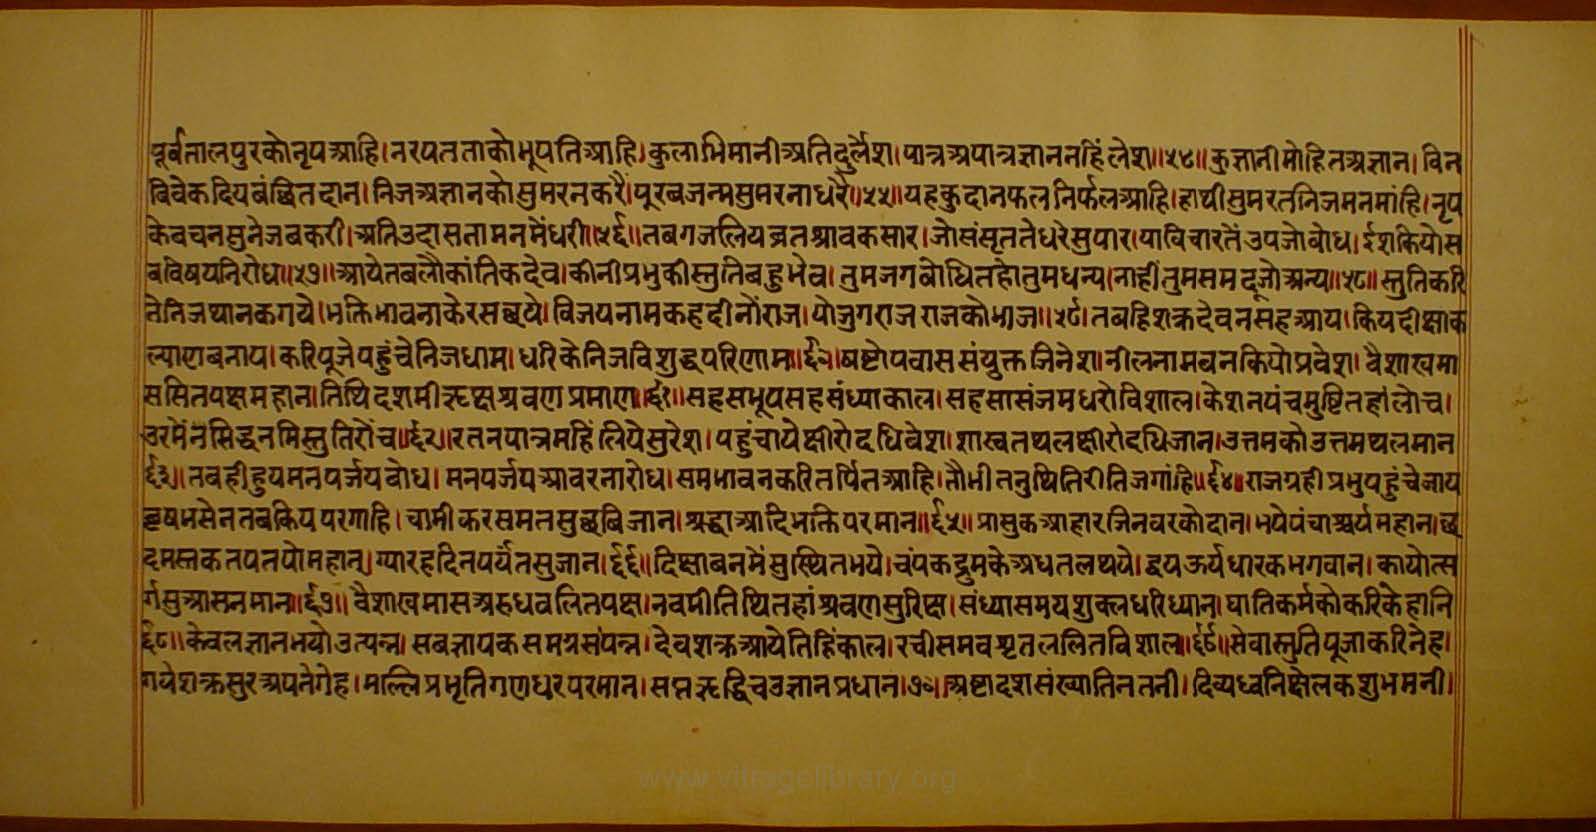 पूर्वतालपुरकोनृपआहि।नरपतताकोभूपतिआहि।कुलाभिमानीअतिदुर्लेश।पात्रअपात्रज्ञाननहिंलेश॥५४॥कुज्ञानीमोहितअज्ञान।विन
विवेकदियबंछितदान।निजअज्ञानकोसुमरनकरै।पूरबजन्मसुमरनाधरै॥५५॥यहकुदानफलनिर्फलआहि।हाथीसुमरतनिजमनमांहि।नृप
केबचनसुनेजबकरी।अतिउदासतामनमेंधरी॥५६॥तबगजलियव्रतश्रावकसार।जोसंसृततेधरेसुपार।याविचारतेंउपजोबोध।ईशकियोस
बविषयनिरोध॥५७॥आयेतबलौकांतिकदेव।कीनीप्रभुकीस्तुतिबहुभेव।तुमजगबोधितहोतुमधन्य।नाहींतुमसमदूजोअन्य॥५८॥स्तुतिकरि
तेनिजथानकगये।भक्तिभावनाकेरसछये।विजयनामकहदीनोंराज।योजुगराजराजकोभाज॥५९॥तबहिशक्रदेवनसहआय।कियदीक्षाक
ल्याणबनाय।करिपूजेपहुंचेनिजधाम।धरिकेनिजविशुद्धपरिणाम॥६०॥षष्टोपवाससंयुक्तजिनेश।नीलनामवनकियोप्रवेश।वैशाखमा
ससितपक्षमहान।तिथिदशमीऋक्षश्रवणप्रमाण॥६१॥सहसभूपसहसंध्याकाल।सहसासंजमधरोविशाल।केशनपंचमुष्टितहांलोच।
उरमेंनसिद्धनमिस्तुतिरोच॥६२॥रतनपात्रमहिंलियेसुरेश।पहुंचायेक्षीरोदधिवेश।शास्वतथलक्षीरोदधिजान।उत्तमकोउत्तमथलमान
६३॥तबहीहुयमनपर्जयबोध।मनपर्जयआवरनारोध।समभावनकरितर्पितआहि।तौभीतनुथितिरीतिजगांहि॥६४॥राजग्रहीप्रभुपहुंचेजाय
वृषभसेनतबकियपरगाहि।चामीकरसमतनसुछबिजान।श्रद्धाआदिभक्तिपरमान॥६५॥प्रासुकआहारजिनवरकोदान।भयेपंचाश्चर्यमहान।छ
दमस्तकतपतपोमहान।ग्यारहदिनपर्यंतसुजान।६६॥दिक्षाबनमेंसुस्थितभये।चंपकद्रुमकेअधतलथये।द्वयऊर्यधारकभगवान।कायोत्स
र्गसुआसनमान॥६७॥वैशाखमासअरुधवलितपक्ष।नवमीतिथितहांश्रवणसुरिक्ष।संध्यासमयशुक्लधरिध्यान।घातिकर्मकोकरिकेहानि
६८॥केवलज्ञानभयोउत्पन्न।सबज्ञायकसमग्रसंपन्न।देवशक्रआयेतिहिंकाल।रचीसमवशृतललितविशाल॥६९॥सेवास्तुतिपूजाकरिनेह।
गयेशक्रसुरअपनेगेह।मल्लिप्रभृतिगणधरपरमान।सप्तऋद्धिचउज्ञानप्रधान।७०॥अष्टादशसंख्यातिनतनी।दिव्यध्वनिक्षेलकशुभमनी।
www.vitragelibrary.org